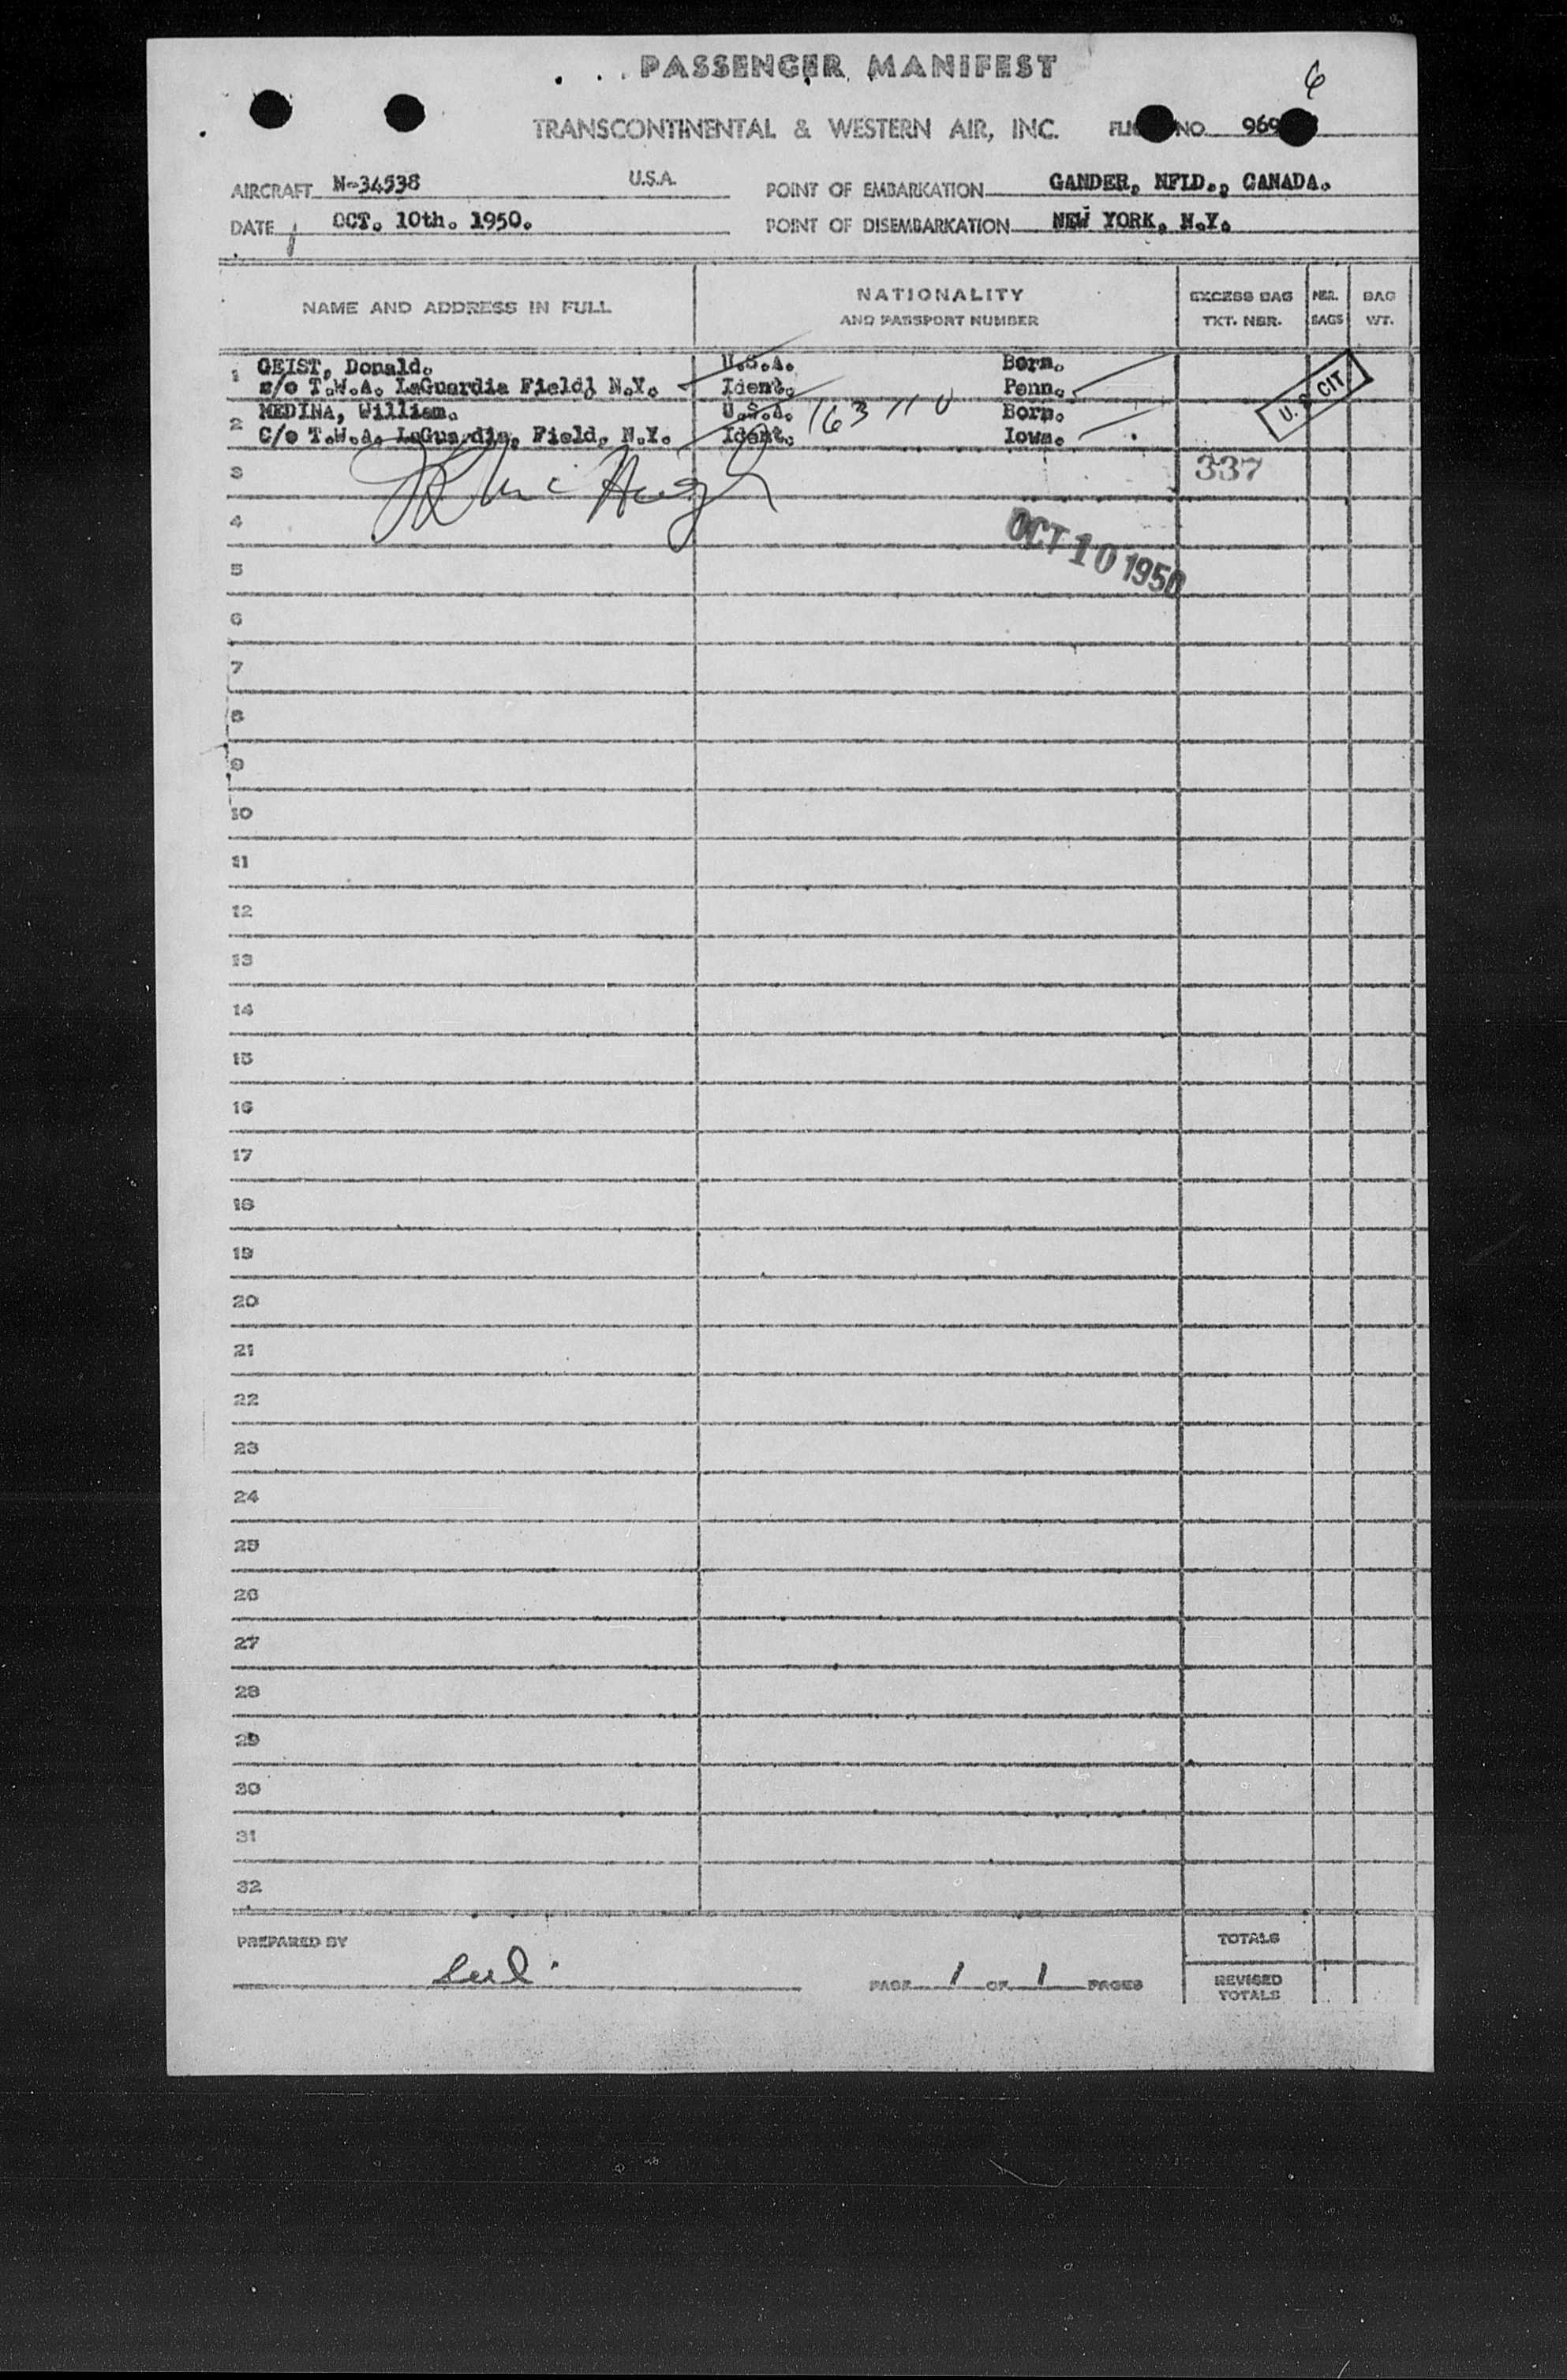 6
PASSENGER MANIFEST
TRANSCONTINENTAL & WESTERN AIR, INC. NO 969
AIRCRAFT N-34538 U.S.A. POINT OF EMBARKATION GANDER, NFLD., CANADA.
DATE OCT. 10th. 1950. POINT OF DISEMBARKATION NEW YORK, N.Y.
NAME AND ADDRESS IN FULL NATIONALITY AND PASSPORT NUMBER EXCESS BAG TKT. NBR. NBR. BAGS BAG WT.
1 GEIST, Donald. U.S.A. Born.
c/o T.W.A. LaGuardia Field, N.Y. Ident. Penn. U.S. CIT.
2 MEDINA, William. U.S.A. Born.
C/o T.W.A. LaGuardia, Field, N.Y. Ident. Iowa.
3 337
4 OCT 10 1950
5
6
7
8
9
10
11
12
13
14
15
16
17
18
19
20
21
22
23
24
25
26
27
28
29
30
31
32
PREPARED BY TOTALS
PAGE 1 OF 1 PAGES REVISED TOTALS